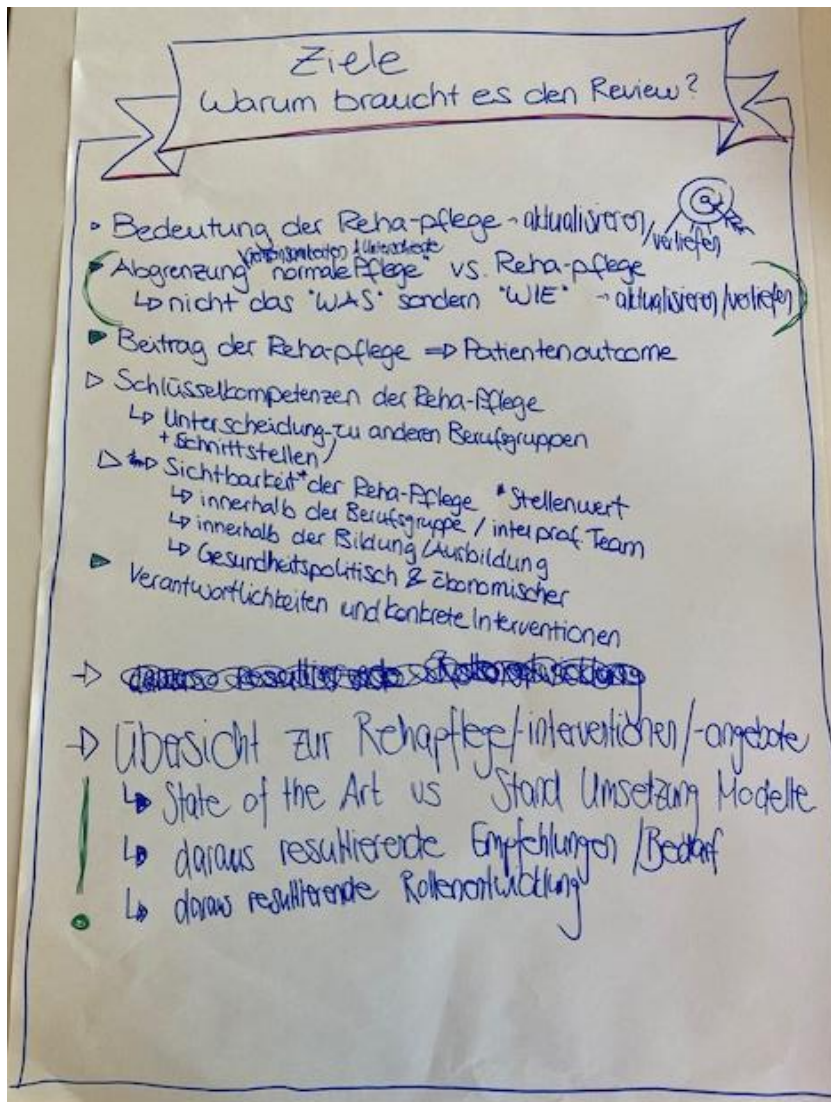 Ziele
Warum braucht es den Review?
Bedeutung der Reha-pflege → aktualisieren/vertiefen
Gemeinsamkeiten & Unterschiede
Abgrenzung "normale Pflege" vs. Reha-pflege
↳ nicht das "WAS" sondern "WIE" → aktualisieren/vertiefen
Beitrag der Reha-pflege ⇒ Patientenoutcome
▷ Schlüsselkompetenzen der Reha-Pflege
↳ Unterscheidung zu anderen Berufsgruppen
+ Schnittstellen
▷ Sichtbarkeit* der Reha-Pflege *Stellenwert
↳ innerhalb der Berufsgruppe / interprof. Team
↳ innerhalb der Bildung/Ausbildung
↳ Gesundheitspolitisch & Ökonomischer
Verantwortlichkeiten und konkrete Interventionen
→ Übersicht zur Rehapflege/-interventionen/-angebote
↳ State of the Art vs Stand Umsetzung Modelle
↳ daraus resultierende Empfehlungen/Bedarf
↳ daraus resultierende Rollenentwicklung